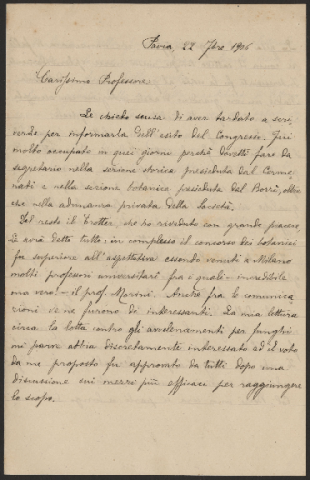 Pavia, 22 7bre 1906
Carissimo Professore
Le chiedo scusa di aver tardato a scri-
verle per informarla dell'esito del Congresso. Fui
molto occupato in quei giorni perchè dovetti fare da
segretario nella sezione storica presieduta dal Cerme-
nati e nella sezione botanica presieduta del Borzì, oltre
che nella adunanza privata della Società.
Del resto il Trotter, che ho riveduto con grande piacere,
Le avrà detto tutto: in complesso il concorso dei botanici
fu superiore all'aspettativa essendo venuti a Milano
molti professori universitari fra i quali - incredibile
ma vero! - il prof. Morini. Anche fra le comunica
zioni ve ne furono di interessanti. La mia lettura
circa la lotta contro gli avvelenamenti per funghi
mi parve abbia discretamente interessato ed il voto
da me proposto fu approvato da tutti dopo una
discussione sui mezzi più efficaci per raggiungere
lo scopo.